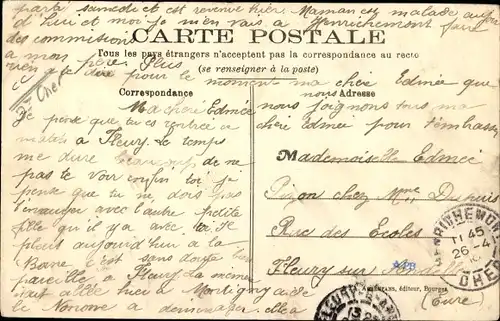 partie samedi et est revenue hier. Maman est malade aujour
d'hui et moi je m'en vais à Henrichemont faire
des commissions
CARTE POSTALE
à mon père
Tous les pays étrangers n'acceptent pas la correspondance au recto
(se renseigner à la poste)
rien que dire pour le moment ma chère Edmée que
Plus
Correspondance
Adresse
nous joignons tous ma
chère Edmée pour t'embrasser
Ma chère Edmée
Je pense que tu es rentrée ce
matin à Fleury. Le temps
me dure beaucoup de ne
pas te voir
toi je
pense que tu ne dois pas
t'ennuyer avec l'autre petite
fille qu'il y a avec toi. Je
pleut aujourd'hui à la
Borne c'est sans doute bien
pareille à Fleury. La mémère
était allée hier à Mortigny aide
le
à déménager elle a
Mademoiselle Edmée
Pizon chez Mme Dupuis
Rue des Ecoles
Fleury sur Andelle
(Eure)
éditeur, Bourges
HENRICHEMONT
11 45
26 -4
CHER